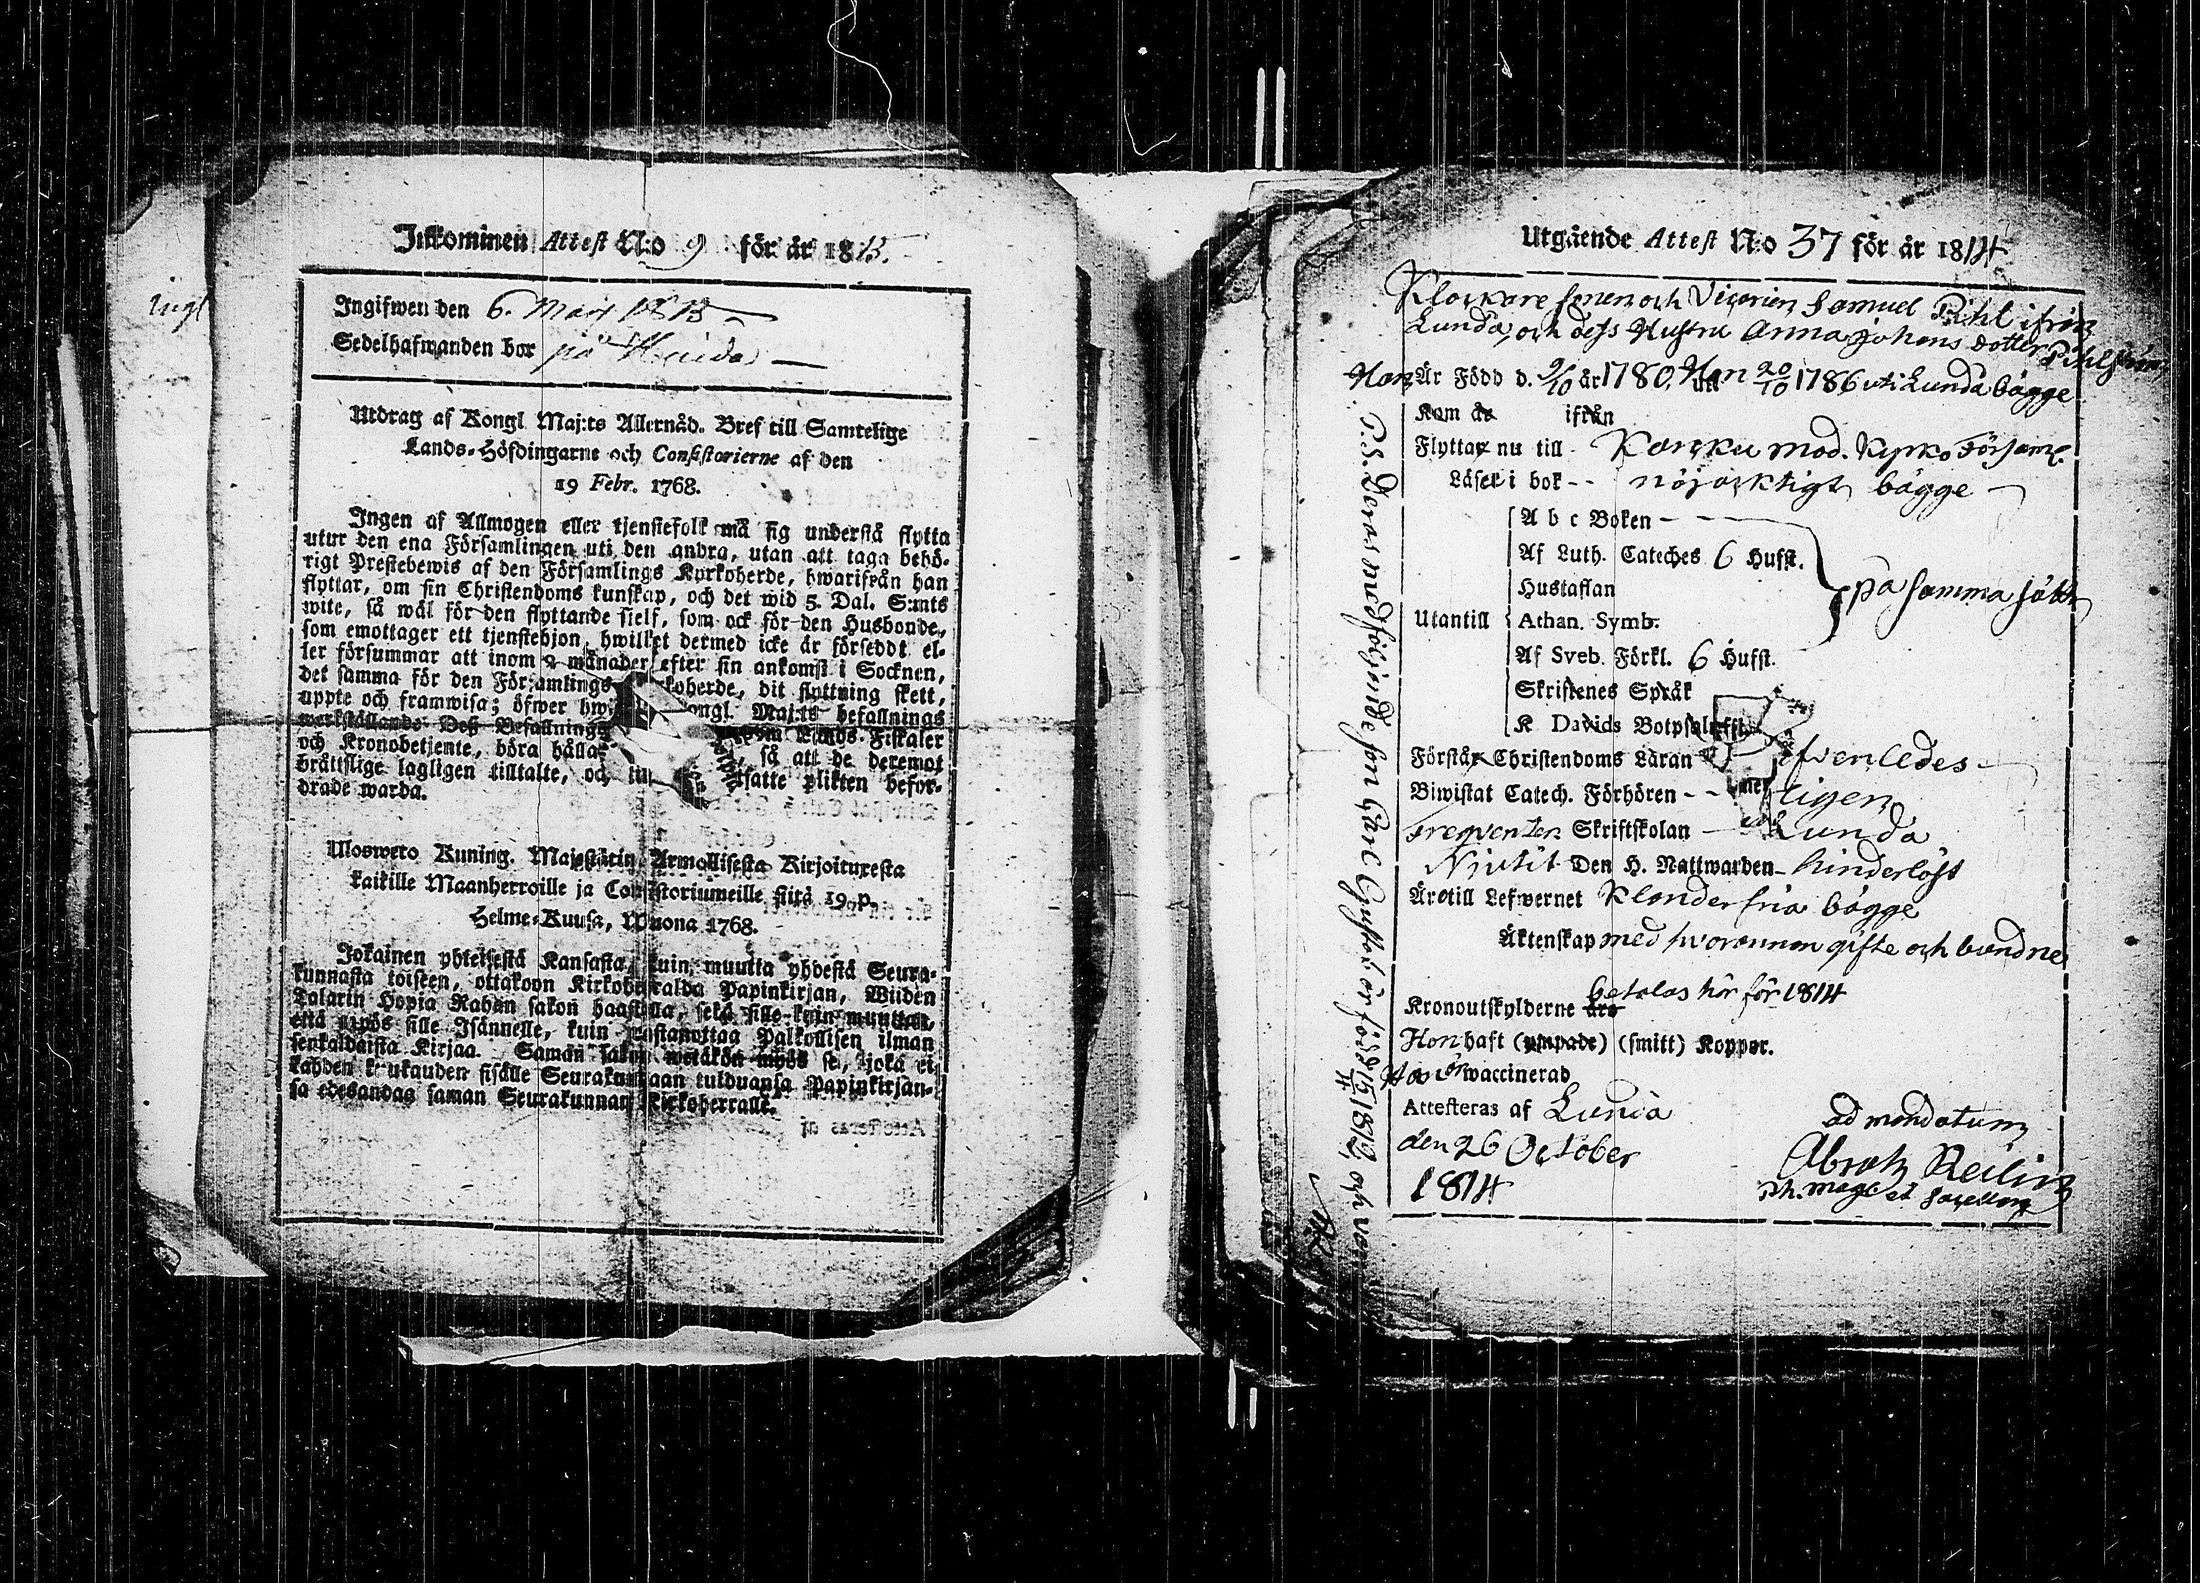 Ingl
Inkommen Attest N:o 9 för år 1815.
Ingifwen den 6. Maij 1815
Sedelhafwanden bor på
Utdrag af Kongl. Maj:ts Allernåd. Bref till Samtelige
Lands-Höfdingarne och Consistorierne af den
19 Febr. 1768.
Ingen af Allmogen eller tjenstefolk må sig understå flytta
utur den ena Församlingen uti den andra, utan att taga behö-
rigt Prestebewis af den Församlings Kyrkoherde, hwarifrån han
flyttar, om sin Christendoms kunskap, och det wid 5. Dal. S:mts
wite, så wäl för den flyttande sielf, som ock för den Husbonde,
som emottager ett tjenstehjon, hwilket dermed icke är försedt el-
ler försummar att inom 2 månader efter sin ankomst i Socknen,
det samma för den Församlings koherde, dit flyttning skett,
uppte och framwisa; öfwer hw ongl. Maj:ts befallnings
werkställande Deß Befallnings Lands-Fiskaler
och Kronobetjente, böra hålla , så att de deremot
bråttslige lagligen tilltalte, och till satte plikten befor-
drade warda.
Ulosweto Kuning. Majestätin Armollisesta Kirjoituxesta
kaikille Maanherroille ja Consistoriumeille siitä 19 p.
Helme-Kuusa, Wuona 1768.
Jokainen yhteisestä Kansasta, kuin muutta yhdestä Seura-
kunnasta toiseen, ottakoon Kirkoherralda Papinkirjan, Wiiden
Talarin Hopia Rahan sakon haastolla, sekä sille kuin muuttaa,
että myös sille Isännelle, kuin wastanottaa Palkollisen ilman
senkaldaista Kirjaa. Saman sakon wetäkön myös se, joka ei
kahden kuukauden sisälle Seurakundaan tulduansa Papinkirjan-
sa edesandaa saman Seurakunnan Kirkoherralle.
Utgående Attest N:o 37 för år 1814
Klockare sonen och Vicarien Samuel Pihl ifrån
Lunda, och dess Hustru Anna Johans dotter Pihlström
Han Är Född d. 9/10 år 1780. Hon 20/10 1786 uti Lunda bägge
Kom år ifrån
Flyttar nu till Karkku mod. Kyrko Församl.
Läser i bok -- nöjacktigt bägge
A b c Boken
Af Luth. Cateches 6 Hufst.
Hustaflan
på samma sätt
Utantill Athan. Symb.
Af Sveb. Förkl. 6 Hufst.
Skriftenes Språk
K Davids Botpsalm
Förstår Christendoms Läran äfvenledes
Biwistat Catech. Förhören -- ligen
frequenter Skriftskolan Lunda
Niutit Den H. Nattwarden hinderlöst
Äro till Lefwernet Klanderfria bägge
Äktenskap med hvarannan gifte och bundne
betalas här för 1814
Kronoutskylderne äro
Hon haft (ympade) (smitt) Koppor.
Han är waccinerad
Attesteras af Lunda
den 26 October
1814
ad mandatum
Abrah Reilin
Ph. Mag. et Sacellan
P.S. Deras medföljande son Carl Gustaf är född 15/4 1812, och vac